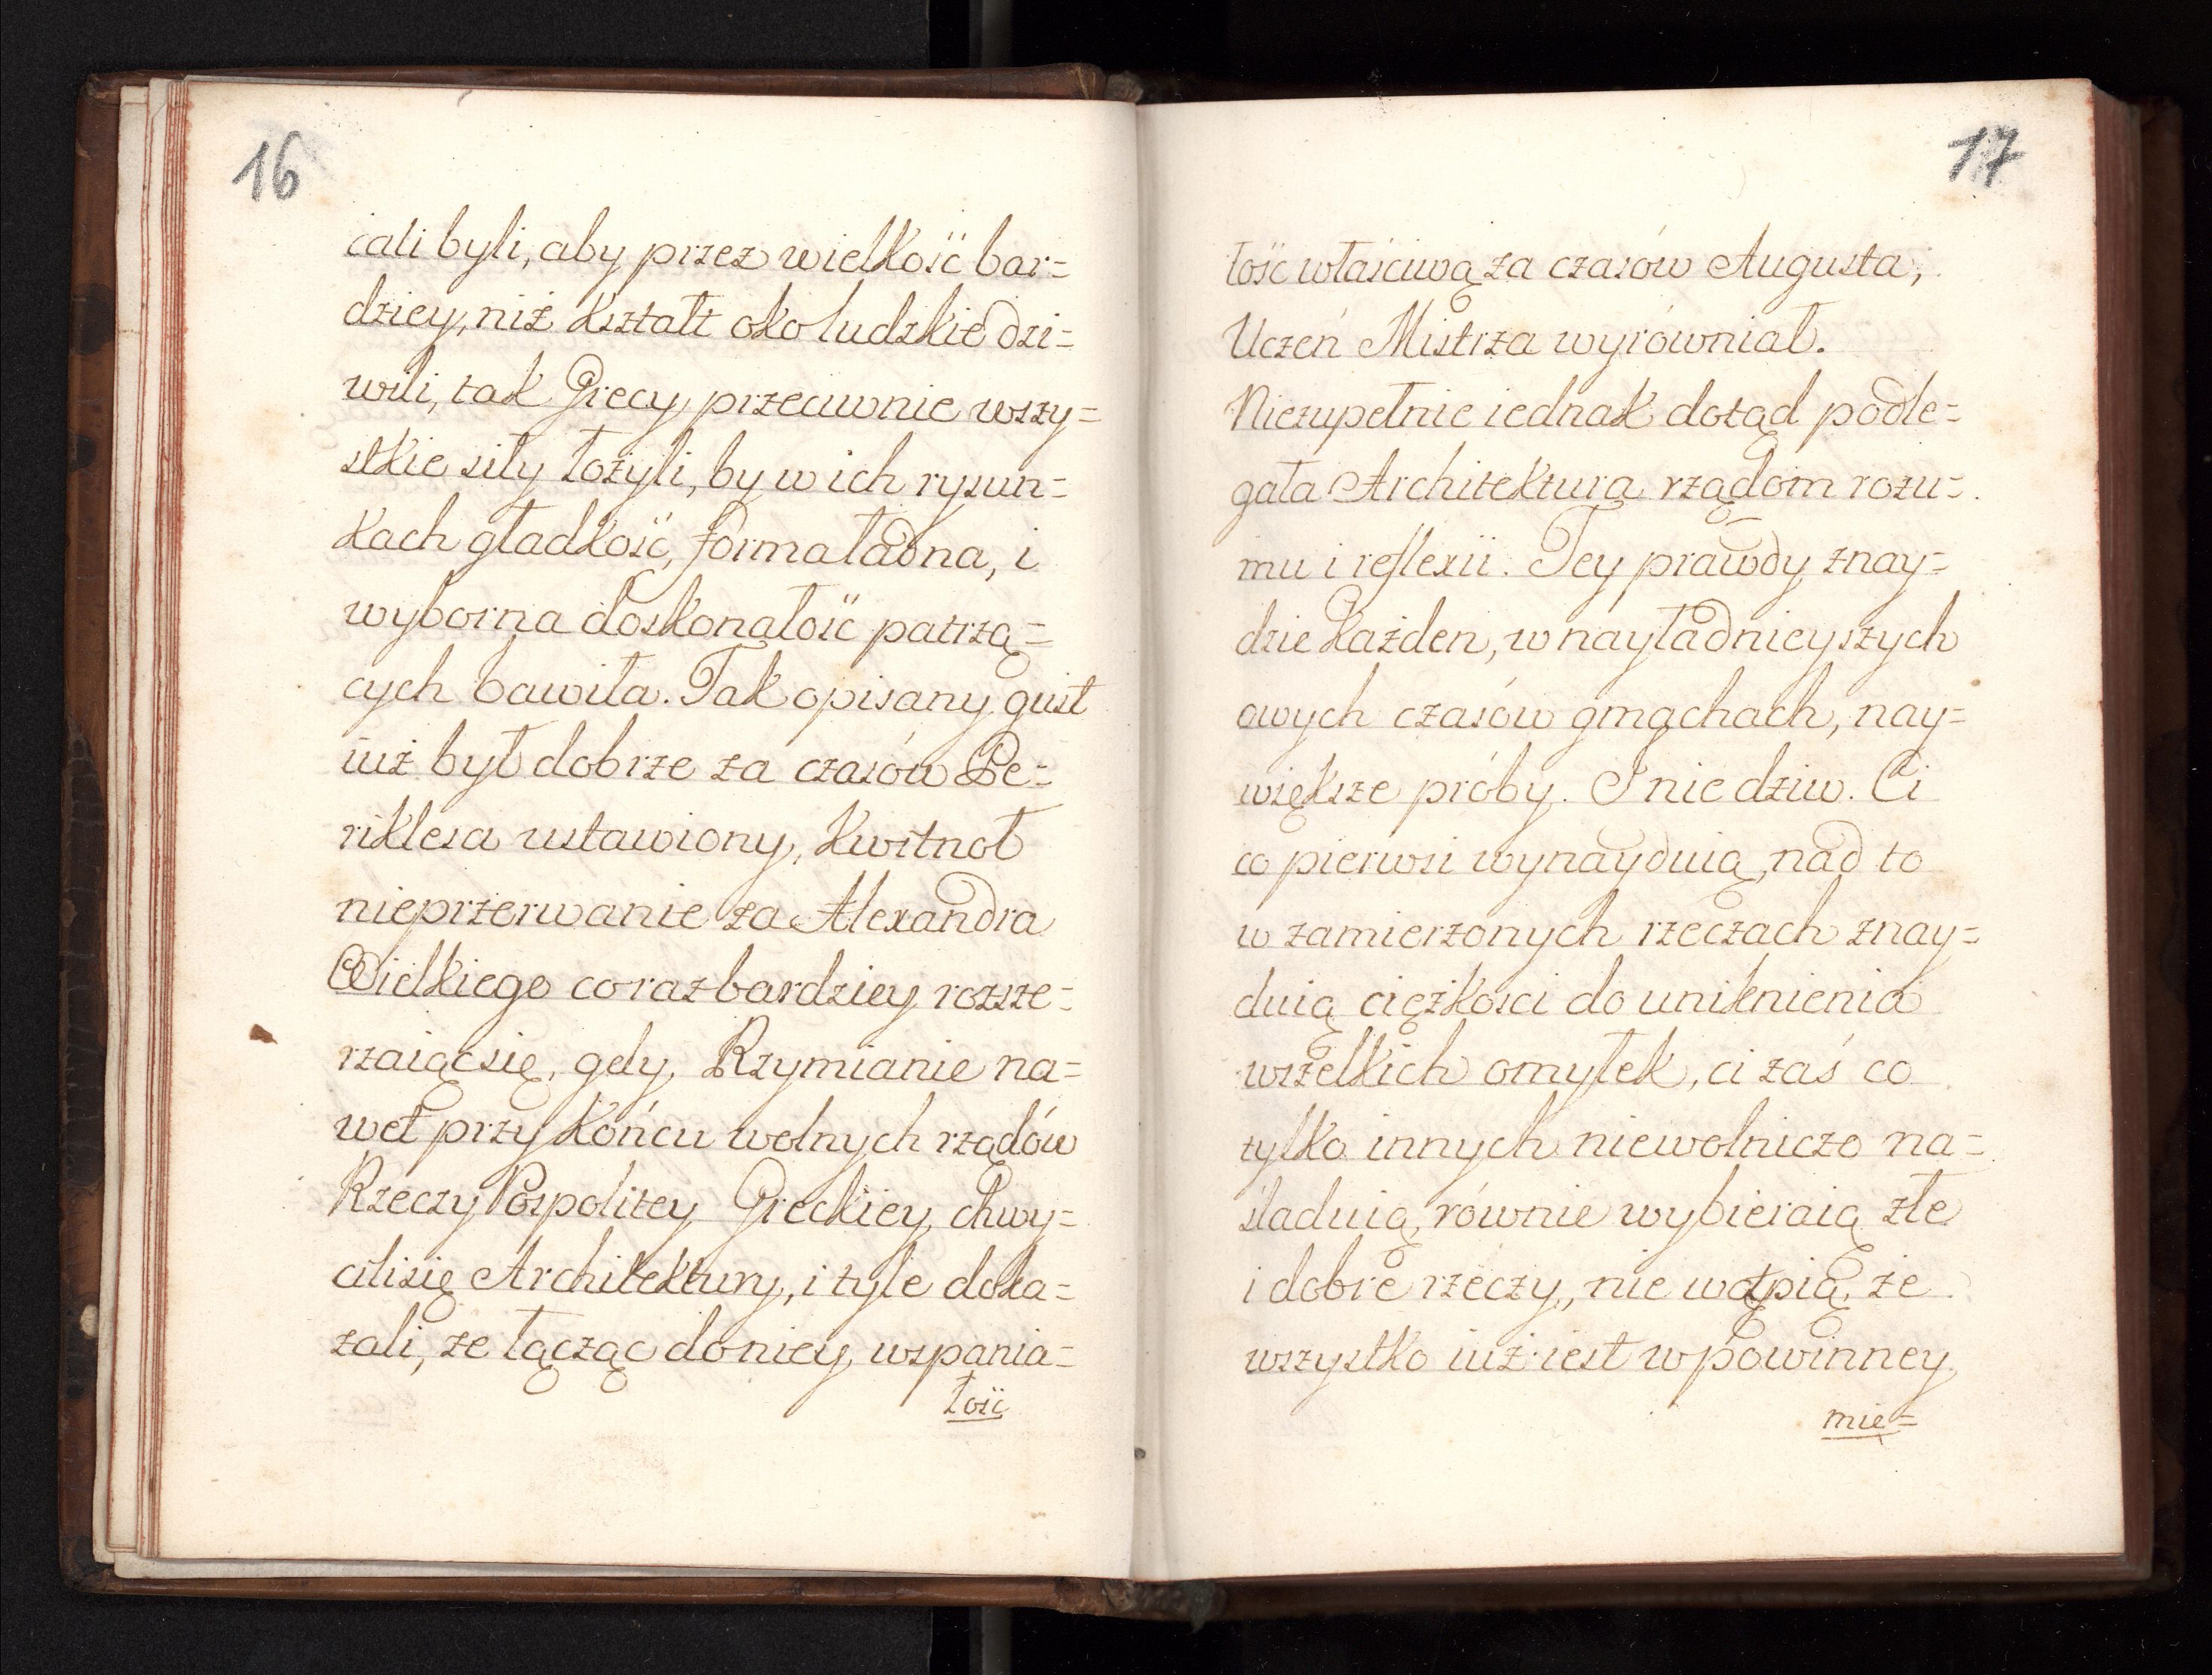 16
cali byli, aby przez wielkość bar=
dziey, niż kształt oko ludzkie dzi=
wili, tak Grecy przeciwnie wszy=
stkie siły łożyli, by w ich rysun=
kach gładkość, forma ładna, i
wyborna doskonałość patrzą=
cych bawiła. Tak opisany gust
iuż był dobrze za czasów Pe=
riklesa wstawiony, kwitnoł
nieprzerwanie za Alexandra
Wielkiego coraz bardziey rozsze=
rzaiąc się, gdy Rzymianie na=
wet przy końcu wolnych rządów
Rzeczy Pospolitey Greckiey chwy=
cili się Architektury, i tyle doka=
zali, że łącząc do niey wspania=
łość
17
łość właściwą za czasów Augusta,
Uczeń Mistrza wyrównial.
Niezupełnie iednak dotąd podle=
gała Architektura rządom rozu=
mu i reflexii. Tey prawdy znay=
dzie każden, w nayładnieyszych
owych czasów gmachach, nay=
większe próby. I nie dziw. Ci
co pierwsi wynayduią, nad to
w zamierzonych rzeczach znay=
duią ciężkości do uniknienia
wszelkich omyłek, ci zaś co
tylko innych niewolniczo na=
śladuią, równie wybieraią złe
i dobre rzeczy, nie wątpią, że
wszystko iuż iest w powinney
mie=